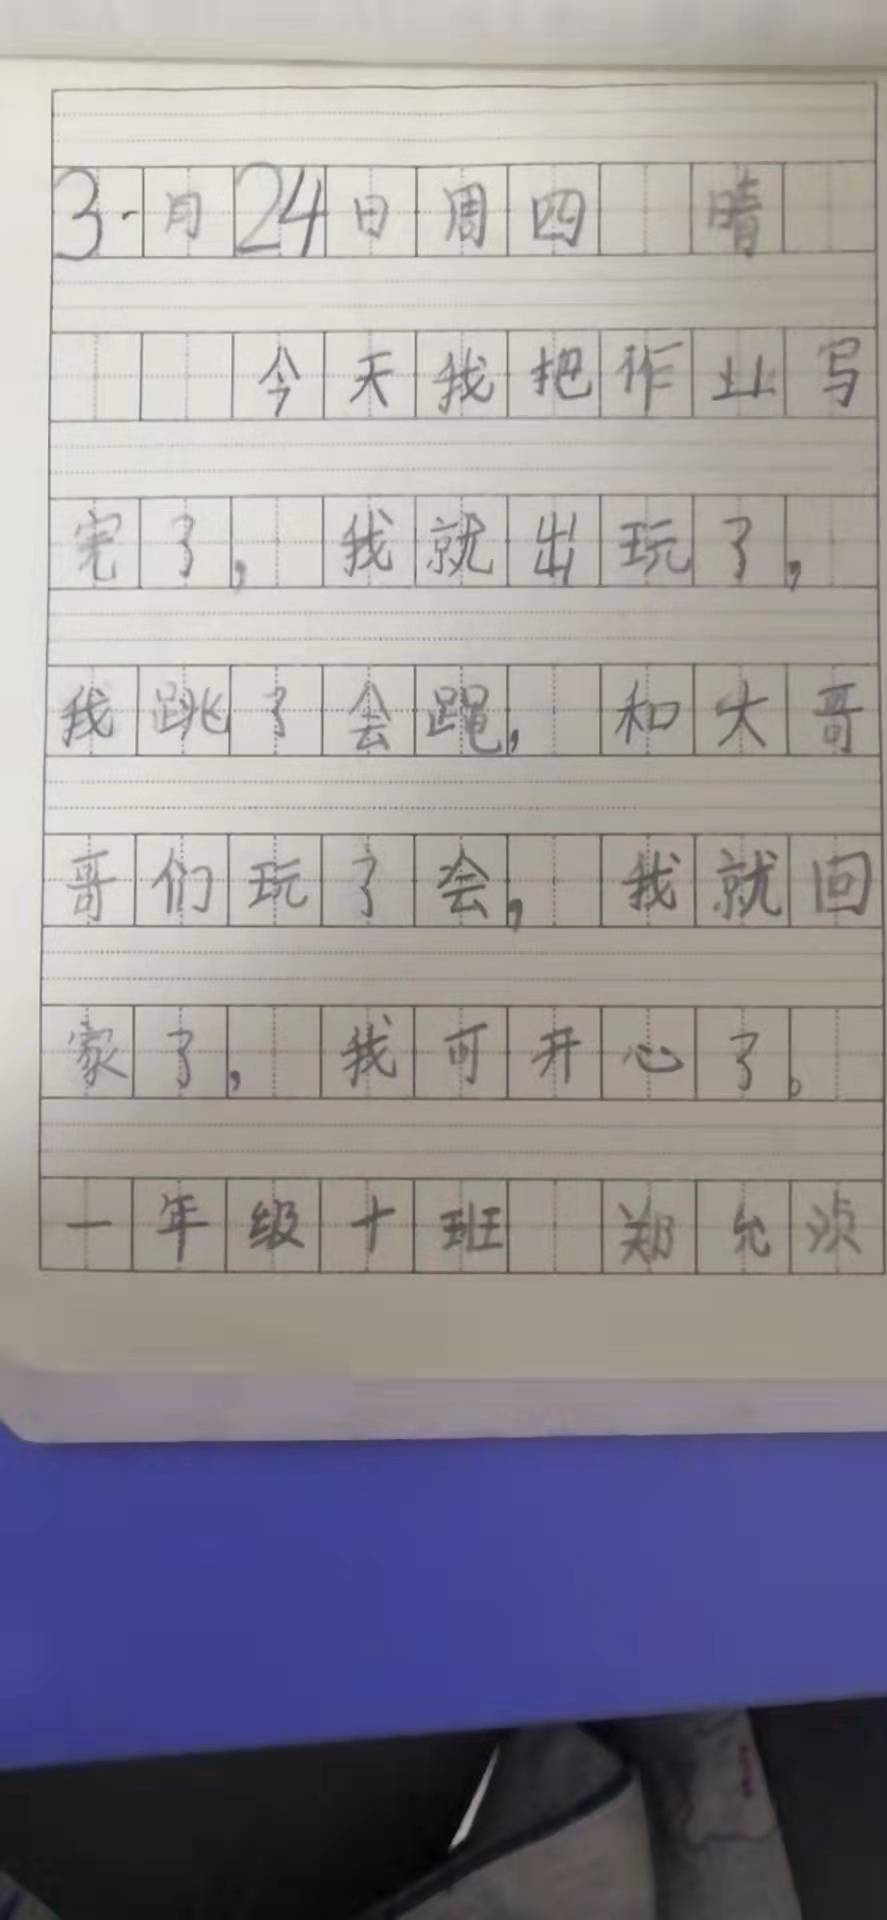 3月24日周四 晴
今天我把作业写
完了，我就出玩了，
我跳了会跳绳，和大哥
哥们玩了会，我就回
家了，我可开心了。
一年级十班 郑允浈